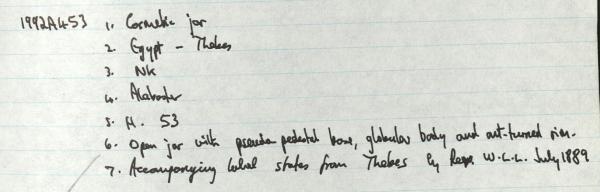 1992A453 1. Cosmetic jar
2. Egypt - Thebes
3. NK
4. Alabaster
5. H. 53
6. Open jar with pseudo pedestal base, globular body and out-turned rim.
7. Accompanying label states from Thebes by W.L.L. July 1889